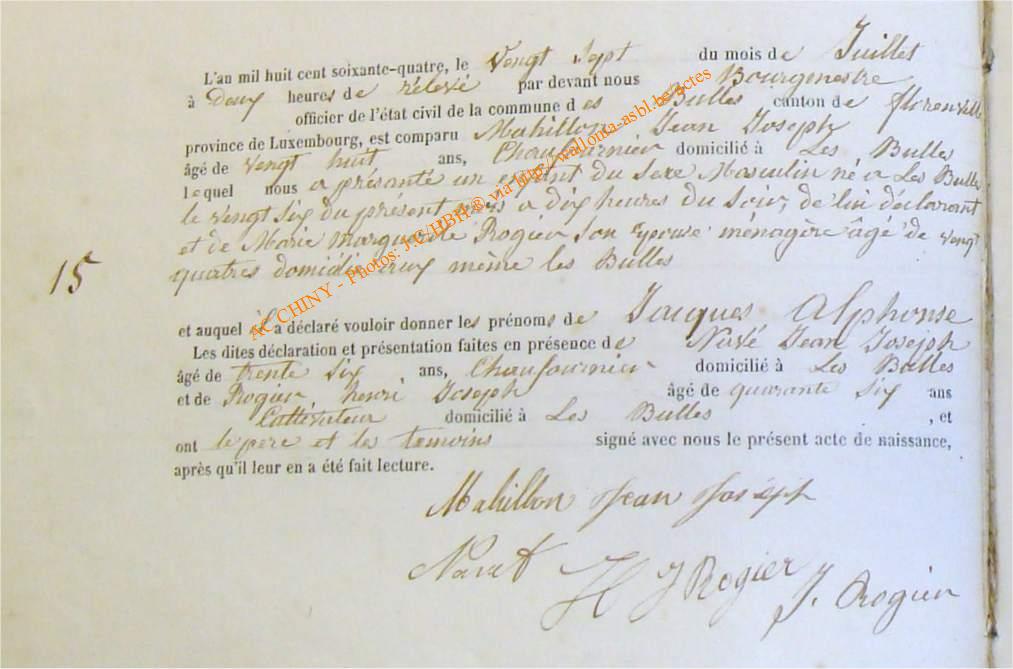 L'an mil huit cent soixante-quatre, le vengt sept du mois de Juillet
à deux heures de rélevé par devant nous Bourgmestre
officier de l'état civil de la commune des Bulles canton de florenville
province de Luxembourg, est comparu Mahillon Jean Joseph
âgé de vengt huit ans, Chaufournier domicilié à Les Bulles
lequel nous a présanté un enfant du sexe Masculin né a Les Bulles
le vengt six du présent mois a dix heures du Soir, de lui déclarant
et de Marie Marguerite Rogier Son Epouse ménagère âgé de vengt
quatres domicilié même les Bulles
15
et auquel il a déclaré vouloir donner les prénoms de Jacques Alphonse
Les dites déclaration et présentation faites en présence de Jean Joseph
âgé de trente six ans, Chaufournier domicilié à Les Bulles
et de Rogier henri Joseph âgé de quarante six ans
Cultivateur domicilié à Les Bulles , et
ont le pere et les temoins signé avec nous le présent acte de naissance,
après qu'il leur en a été fait lecture.
Mahillon Jean Joseph
H J Rogier J. Rogier
AC CHINY - Photos: J.C/HBH® via http://wallonia-asbl.be/actes